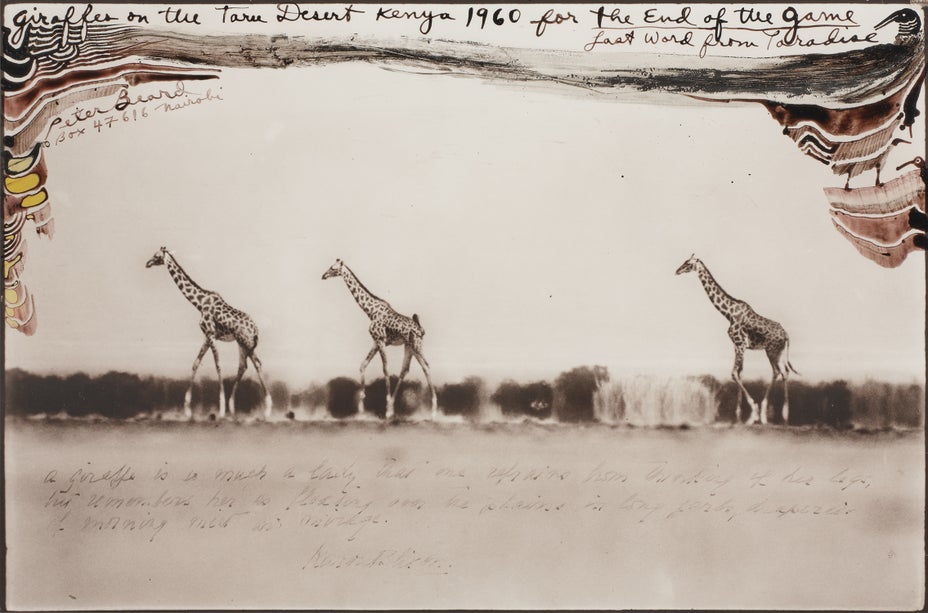 giraffes on the Taru Desert Kenya 1960 for the End of the Game
Last Word from Paradise
Peter Beard
Box 47616 Nairobi
a giraffe is so much a lady that one refrains from thinking of her legs,
but remembers her as floating over the plains in long garbs, draperies
of morning mist or mirage.